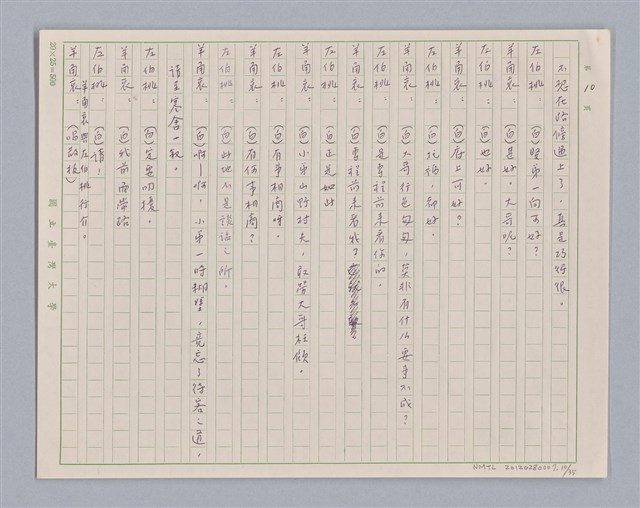 第 10 頁
不想在路傍遇上了,真是巧得很。
左伯桃:(白)賢弟一向可好?
羊角哀:(白)是好。大哥呢?
左伯桃:(白)也好。
羊角哀:(白)府上可好?
左伯桃:(白)托福,都好。
羊角哀:(白)大哥行色匆匆,莫非有什么要事不成?
左伯桃:(白)是專程前來看你的。
羊角哀:(白)專程前來看我?
左伯桃:(白)正是如此
羊角哀:(白)小弟山野村夫,敢勞大哥枉顧。
左伯桃:(白)有事相商呀。
羊角哀:(白)有何事相商?
左伯桃:(白)此地不是談話之所。
羊角哀:(白)啊—啊,小弟一時糊塗,竟忘了待客之道,
請至寒舍一敘。
左伯桃:(白)定要叨擾。
羊角哀:(白)我前面帶路
左伯桃:(白)請!
羊角哀與左伯桃行介。
羊角哀:(唱散板)
20×25=500
國立臺灣大學
NMTL 20120280007, 10/35